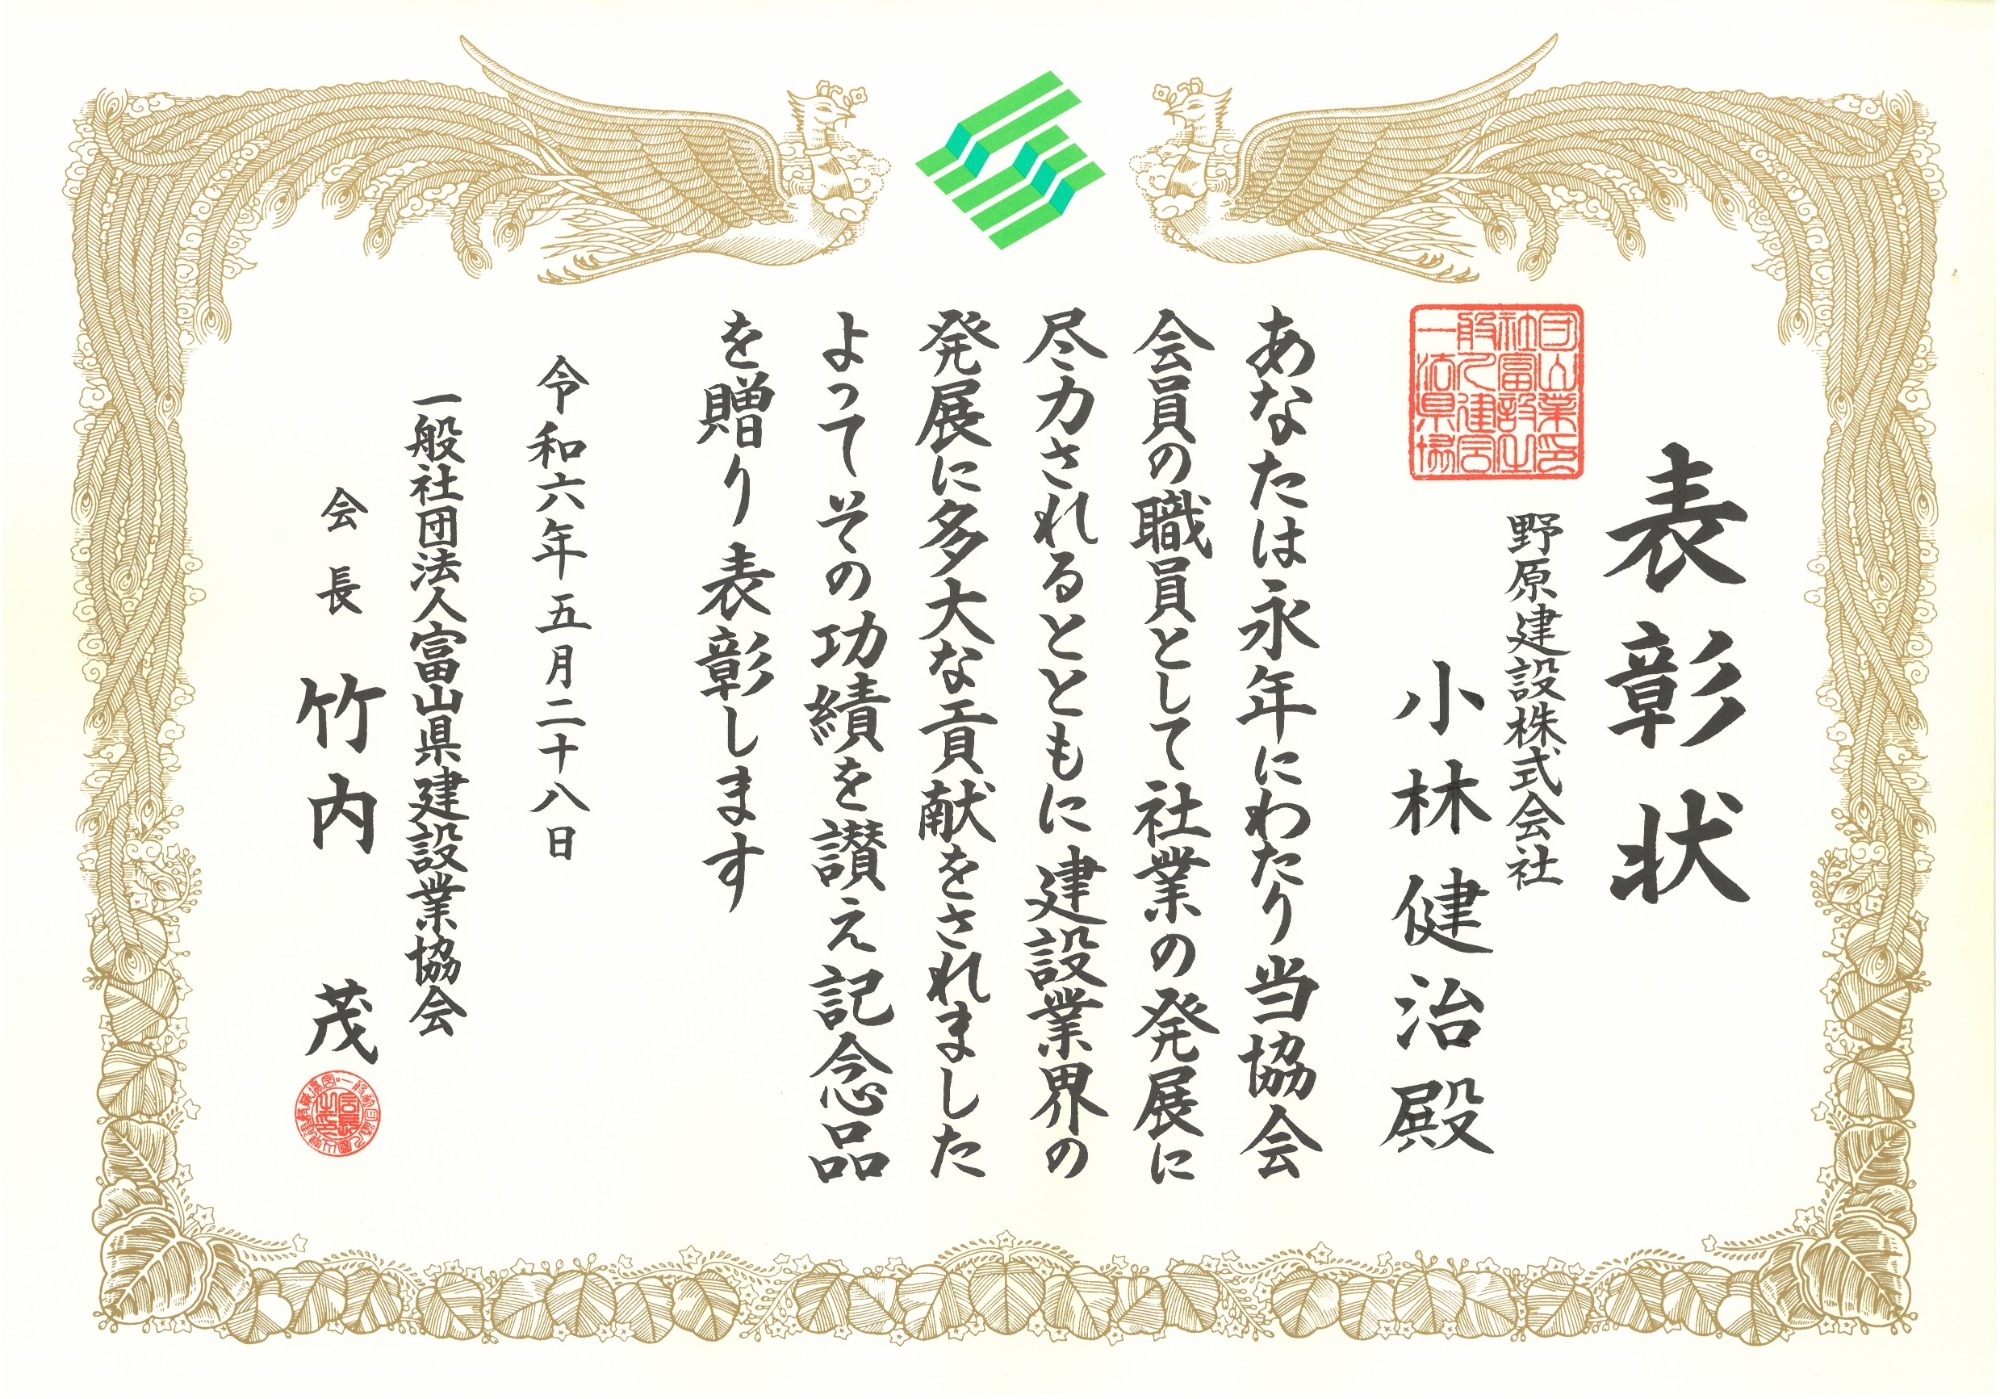 表彰状
野原建設株式会社
小林健治殿
あなたは永年にわたり当協会
会員の職員として社業の発展に
尽力されるとともに建設業界の
発展に多大な貢献をされました
よってその功績を讃え記念品
を贈り表彰します
令和六年五月二十八日
一般社団法人富山県建設業協会
会長 竹内 茂